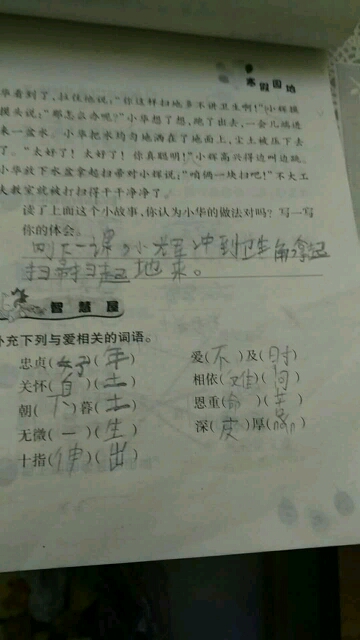 寒假园地
华看到了,拉住他说:“你这样扫地多不讲卫生啊!”小辉摸
摸头说:“那怎么办呢?”小华想了想,跑了出去,一会儿端进
来一盆水。小华把水均匀地洒在了地面上,尘土被压下去
了。“太好了!太好了!你真聪明!”小辉高兴得边叫边跳。
小华放下水盆拿起扫帚对小辉说:“咱俩一块扫吧!”不大工
夫教室就被打扫得干干净净了。
读了上面这个小故事,你认为小华的做法对吗?写一写
你的体会。
刚下课,小 冲到卫生角拿起
扫帚扫起地来。
智慧屋
补充下列与爱相关的词语。
忠贞( )(年) 爱(不)及(时)
关怀(自)(土) 相依(难)(间)
朝(下)暮(土) 恩重(命)( )
无微(一)(生) 深(皮)厚( )
十指(伸)(出)